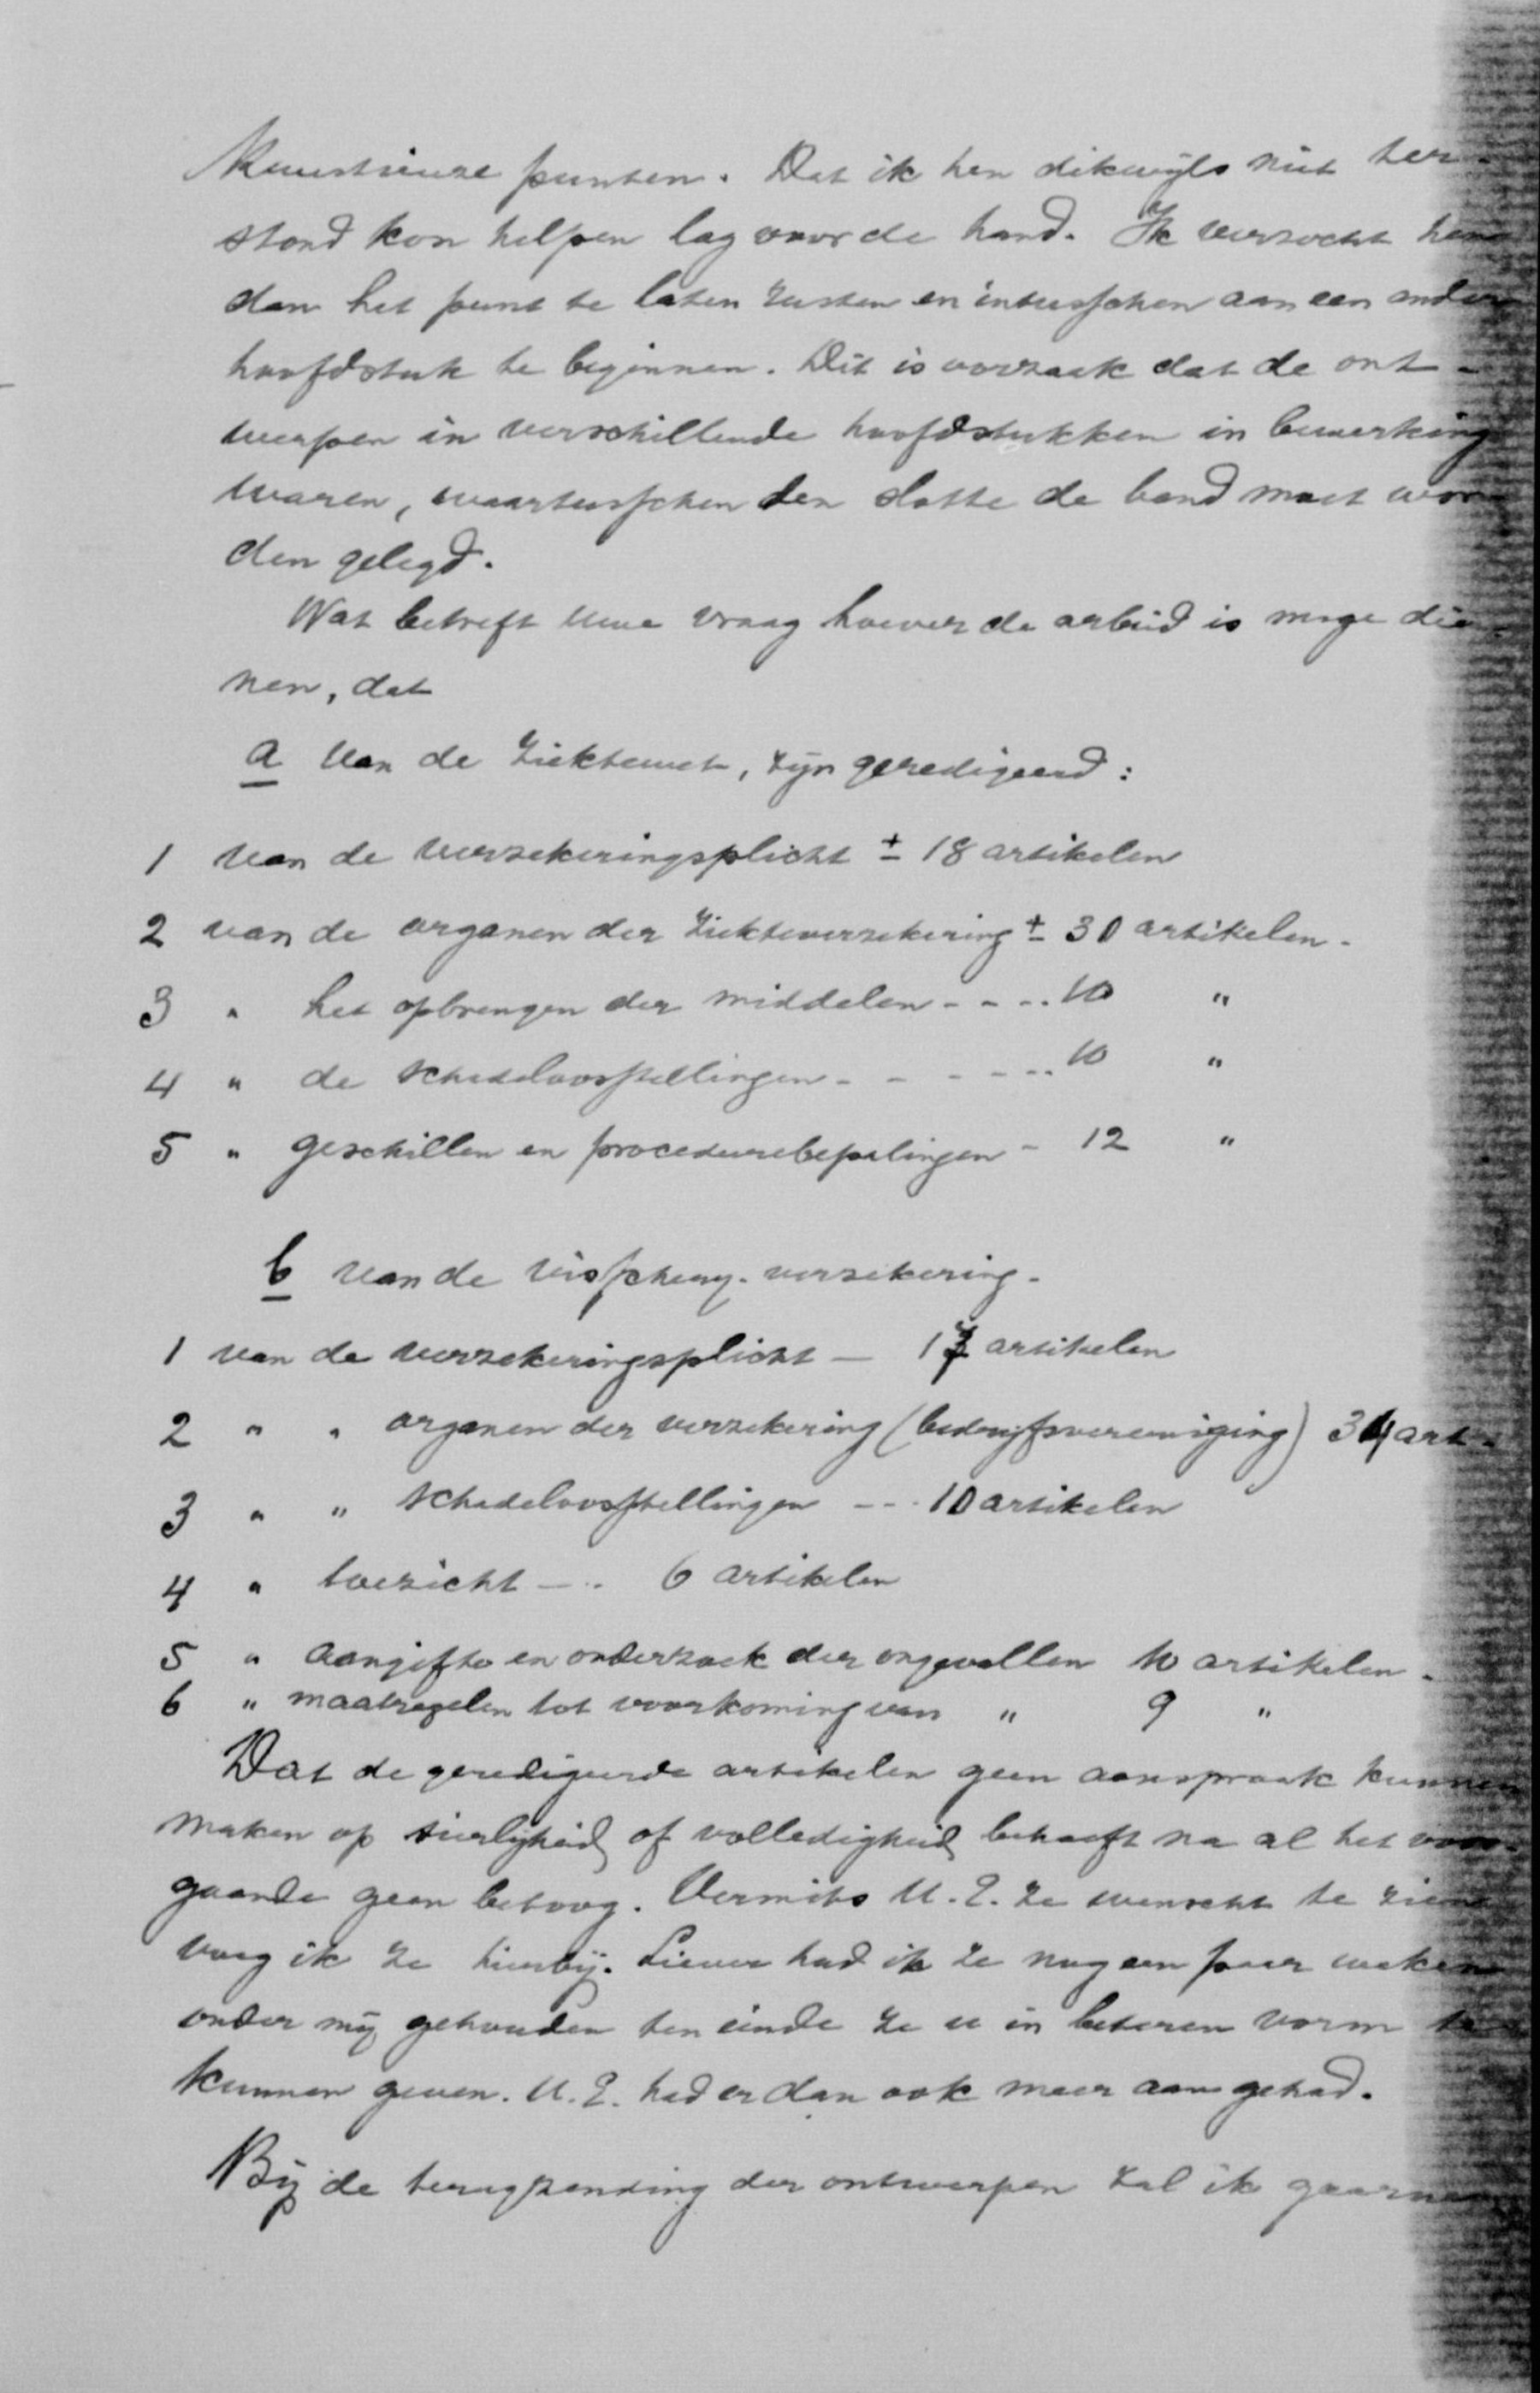 kwestieuze punten. Dat ik hen dikwijls niet ter-
stond kon helpen lag voor de hand. Ik verzocht hen
dan het punt te laten rusten en intusschen aan een ander
hoofdstuk te beginnen. Dit is oorzaak dat de ont-
werpen in verschillende hoofdstukken in bewerking
waren, waartusschen ten slotte de band moet wor-
den gelegd.
Wat betreft uwe vraag hoever de arbeid is moge die-
nen, dat
a van de Ziektewet, zijn geredigeerd:
1 van de verzekeringsplicht ± 18 artikelen
2 van de organen der Ziekteverzekering ± 30 artikelen.
3 " het opbrengen der middelen - - - - 10 "
4 " de schadeloosstellingen - - - - - - 10 "
5 " geschillen en procedurebepalingen - 12 "
b van de visscherij-verzekering.
1 van de verzekeringsplicht — 17 artikelen
2 " " organen der verzekering (bedrijfsvereeniging) 34 art.
3 " " schadeloosstellingen - - - 10 artikelen
4 " toezicht - - - 6 artikelen
5 " aangifte en onderzoek der ongevallen 10 artikelen.
6 " maatregelen tot voorkoming van " 9 "
Dat de geredigeerde artikelen geen aanspraak kunnen
maken op sierlijkheid of volledigheid behoeft na al het voor-
gaande geen betoog. Vermits U.E. ze wenscht te zien
voeg ik ze hierbij. Liever had ik ze nog een paar weken
onder mij gehouden ten einde ze u in beteren vorm te
kunnen geven. U.E. had er dan ook meer aan gehad.
Bij de terugzending der ontwerpen zal ik gaarne